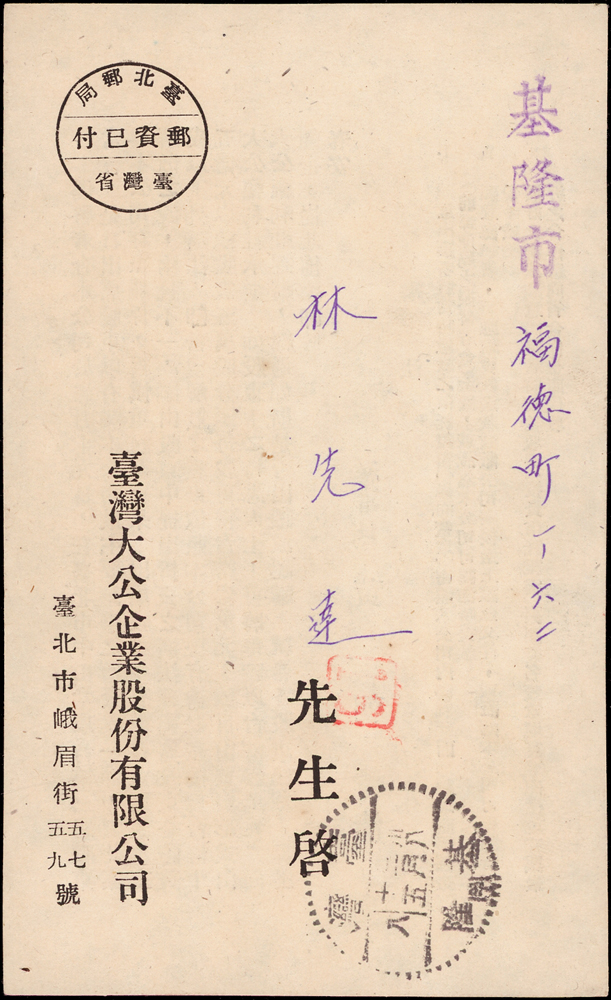 基隆市福德町一-六二
林先達先生啓
臺灣大公企業股份有限公司
臺北市峨眉街五七五九號
臺北郵局
郵資已付
臺灣省
基隆
臺灣